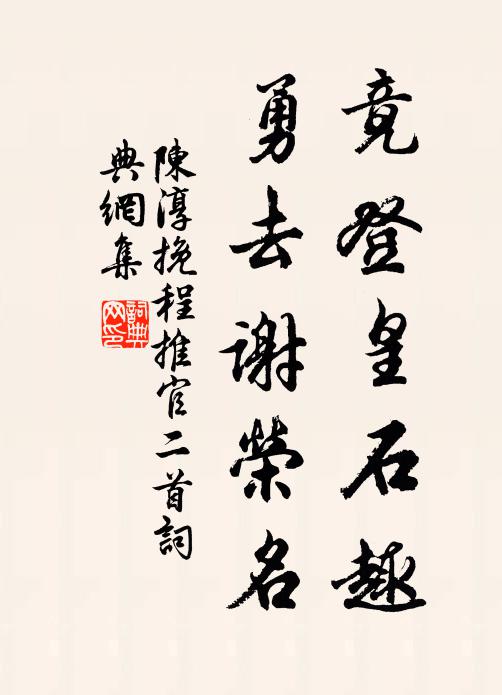 竟登皇石趣
勇去謝榮名
陳淳挽程推官二首詞
典網集
詞典网印